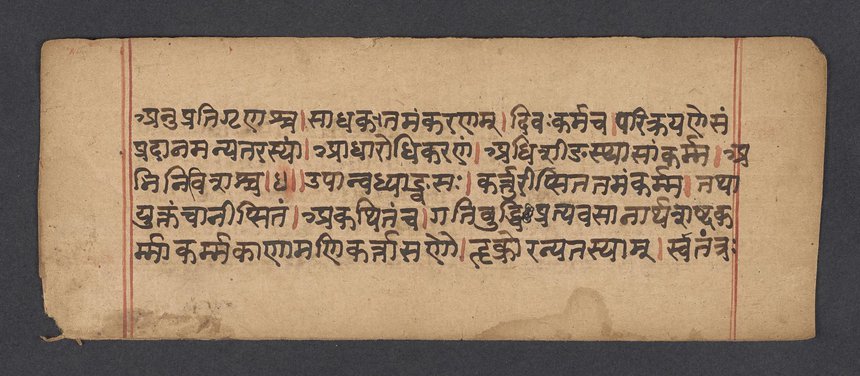 अनुप्रतिगृणश्च।साधकतमंकरणम्।दिवःकर्मच।परिक्रयणेसं
प्रदानमन्यतरस्यां।आधारोधिकरणं।अधिशीङस्थासांकर्म्म।अ
भिनिविशश्च।४।उपान्वध्याङ्वसः।कर्त्तुरीप्सिततमंकर्म्म।तथा
युक्तंचानीप्सितं।अकथितंच।गतिबुद्धिप्रत्यवसानार्थशब्दक
र्म्माकर्म्मकाणामणिकर्त्तासणौ।हृक्रोरन्यतरस्याम्।स्वतंत्रः